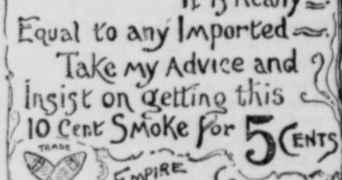 It is Really
Equal to any Imported
Take my Advice and
Insist on getting this
10 Cent Smoke for 5 Cents
TRADE
EMPIRE